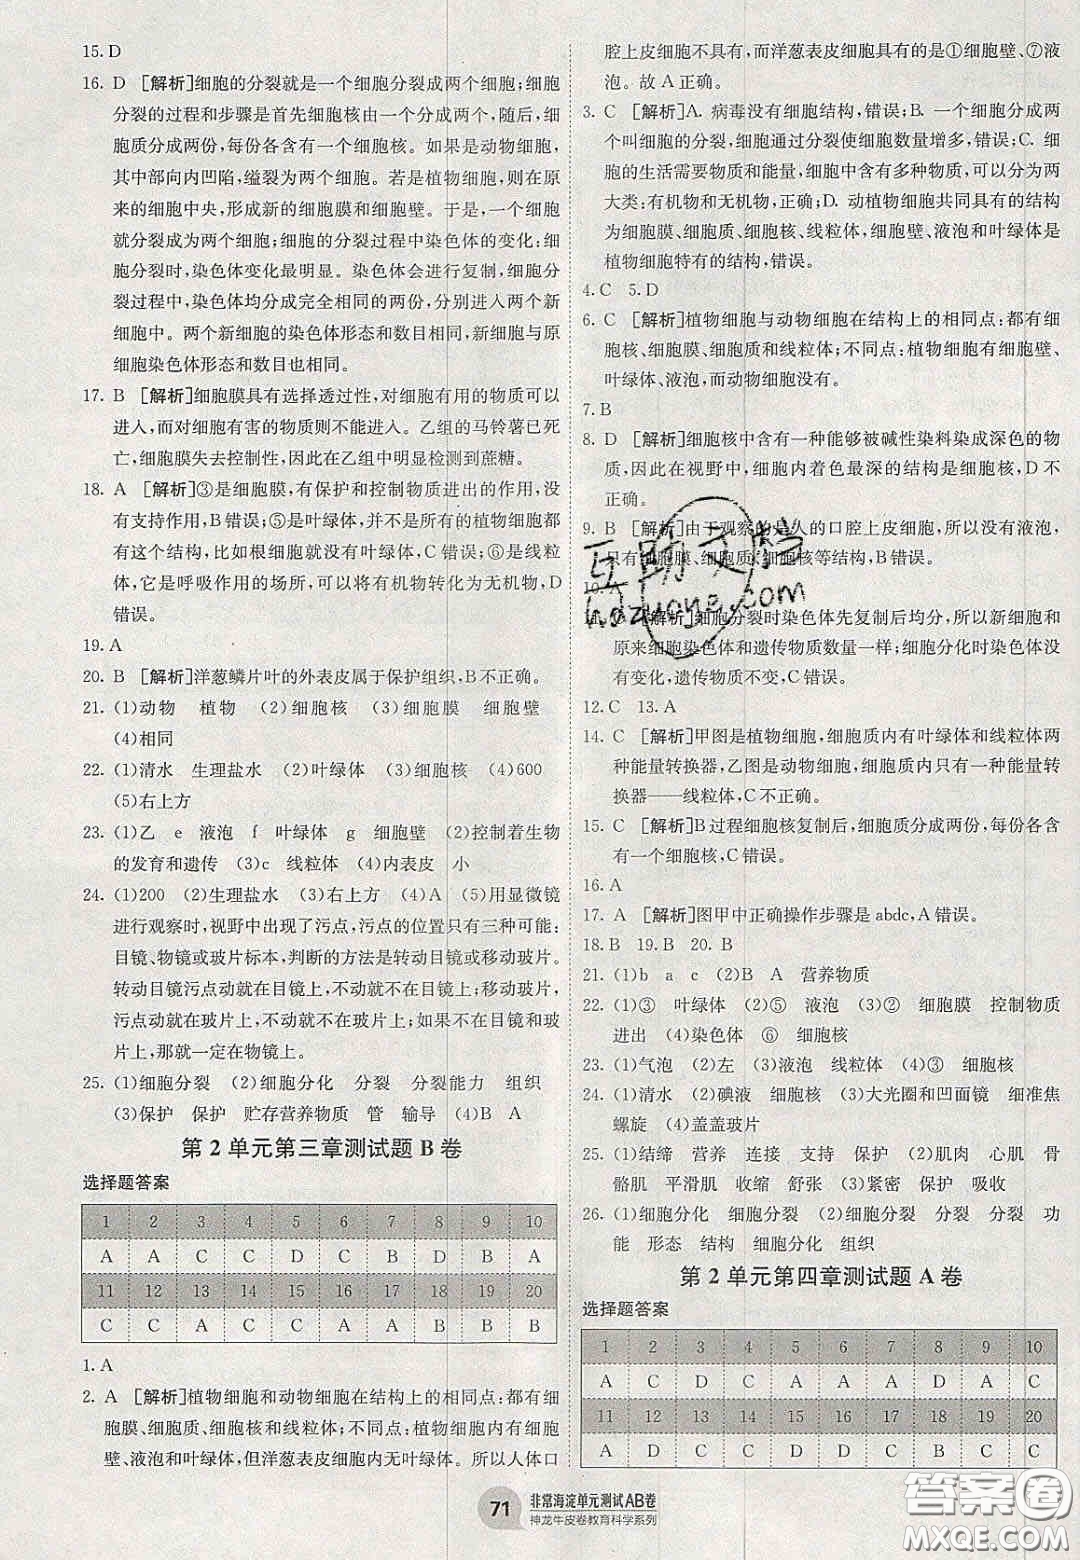 15. D
16. D [解析]细胞的分裂就是一个细胞分裂成两个细胞;细胞
分裂的过程和步骤是首先细胞核由一个分成两个,随后,细
胞质分成两份,每份各含有一个细胞核。如果是动物细胞,
其中部向内凹陷,缢裂为两个细胞。若是植物细胞,则在原
来的细胞中央,形成新的细胞膜和细胞壁。于是,一个细胞
就分裂成为两个细胞;细胞的分裂过程中染色体的变化:细
胞分裂时,染色体变化最明显。染色体会进行复制,在细胞分
裂过程中,染色体均分成完全相同的两份,分别进入两个新
细胞中。两个新细胞的染色体形态和数目相同,新细胞与原
细胞染色体形态和数目也相同。
17. B [解析]细胞膜具有选择透过性,对细胞有用的物质可以
进入,而对细胞有害的物质则不能进入。乙组的马铃薯已死
亡,细胞膜失去控制性,因此在乙组中明显检测到蔗糖。
18. A [解析]③是细胞膜,有保护和控制物质进出的作用,没
有支持作用,B错误;⑤是叶绿体,并不是所有的植物细胞都
有这个结构,比如根细胞就没有叶绿体,C错误;⑥是线粒
体,它是呼吸作用的场所,可以将有机物转化为无机物,D
错误。
19. A
20. B [解析]洋葱鳞片叶的外表皮属于保护组织,B不正确。
21. (1)动物 植物 (2)细胞核 (3)细胞膜 细胞壁
(4)相同
22. (1)清水 生理盐水 (2)叶绿体 (3)细胞核 (4)600
(5)右上方
23. (1)乙 e 液泡 f 叶绿体 g 细胞壁 (2)控制着生物
的发育和遗传 (3)c 线粒体 (4)内表皮 小
24. (1)200 (2)生理盐水 (3)右上方 (4)A (5)用显微镜
进行观察时,视野中出现了污点,污点的位置只有三种可能:
目镜、物镜或玻片标本,判断的方法是转动目镜或移动玻片。
转动目镜污点动就在目镜,不动就不在目镜上;移动玻片,
污点动就在玻片上,不动就不在玻片上;如果不在目镜和玻
片上,那就一定在物镜上。
25. (1)细胞分裂 (2)细胞分化 分裂 分裂能力 组织
(3)保护 保护 贮存营养物质 管 输导 (4)B A
第2单元第三章测试题B卷
选择题答案
1 2 3 4 5 6 7 8 9 10
A A C C D C B D B A
11 12 13 14 15 16 17 18 19 20
C C A C C A A B B B
1. A
2. A [解析]植物细胞和动物细胞在结构上的相同点:都有细
胞膜、细胞质、细胞核和线粒体;不同点:植物细胞内有细胞
壁、液泡和叶绿体,但洋葱表皮细胞内无叶绿体。所以人体口
腔上皮细胞不具有,而洋葱表皮细胞具有的是①细胞壁、⑦液
泡。故A正确。
3. C [解析]A. 病毒没有细胞结构,错误;B. 一个细胞分成两
个叫细胞的分裂,细胞通过分裂使细胞数量增多,错误;C. 细
胞的生活需要物质和能量,细胞中含有多种物质,可以分为两
大类:有机物和无机物,正确;D. 动植物细胞共同具有的结构
为细胞膜、细胞质、细胞核、线粒体,而叶绿体、细胞壁、液泡是
植物细胞特有的结构,错误。
4. C 5. D
6. C [解析]植物细胞与动物细胞在结构上的相同点:都有细
胞核、细胞膜、细胞质和线粒体;不同点:植物细胞有细胞壁、
叶绿体、液泡,而动物细胞没有。
7. B
8. D [解析]细胞核中含有一种能够被碱性染料染成深色的物
质,因此在视野中,细胞内着色最深的结构是细胞核,D不
正确。
9. B [解析]由于观察的是人的口腔上皮细胞,所以没有液泡,
只有细胞膜、细胞质、细胞核等结构,B错误。
10. A
[解析]细胞分裂时染色体先复制后均分,所以新细胞和
原来细胞染色体和遗传物质数量一样;细胞分化时染色体没
有变化,遗传物质不变,C错误。
12. C 13. A
14. C [解析]甲图是植物细胞,细胞质内有叶绿体和线粒体两
种能量转换器,乙图是动物细胞,细胞质内只有一种能量转
换器——线粒体,C不正确。
15. C [解析]B过程细胞核复制后,细胞质分成两份,每份各含
有一个细胞核,C错误。
16. A
17. A [解析]图甲中正确操作步骤是abdc,A错误。
18. B 19. B 20. B
21. (1)b a c (2)B A 营养物质
22. (1)③ 叶绿体 (2)⑤ 液泡 (3)② 细胞膜 控制物质
进出 (4)染色体 ⑥ 细胞核
23. (1)气泡 (2)左 (3)液泡 线粒体 (4)③ 细胞核
24. (1)清水 (2)碘液 细胞核 (3)大光圈和凹面镜 细准焦
螺旋 (4)盖盖玻片
25. (1)结缔 营养 连接 支持 保护 (2)肌肉 心肌 骨
骼肌 平滑肌 收缩 舒张 (3)紧密 保护 吸收
26. (1)细胞分化 细胞分裂 (2)细胞分裂 分裂 分裂 功
能 形态 结构 细胞分化 组织
第2单元第四章测试题A卷
选择题答案
1 2 3 4 5 6 7 8 9 10
A C D C A A A D A C
11 12 13 14 15 16 17 18 19 20
A D C C D D C B C C
71
非常海淀单元测试AB卷
神龙牛皮卷教育科学系列
互助文档
hdzuoye.com
答案圈
MXQE.COM